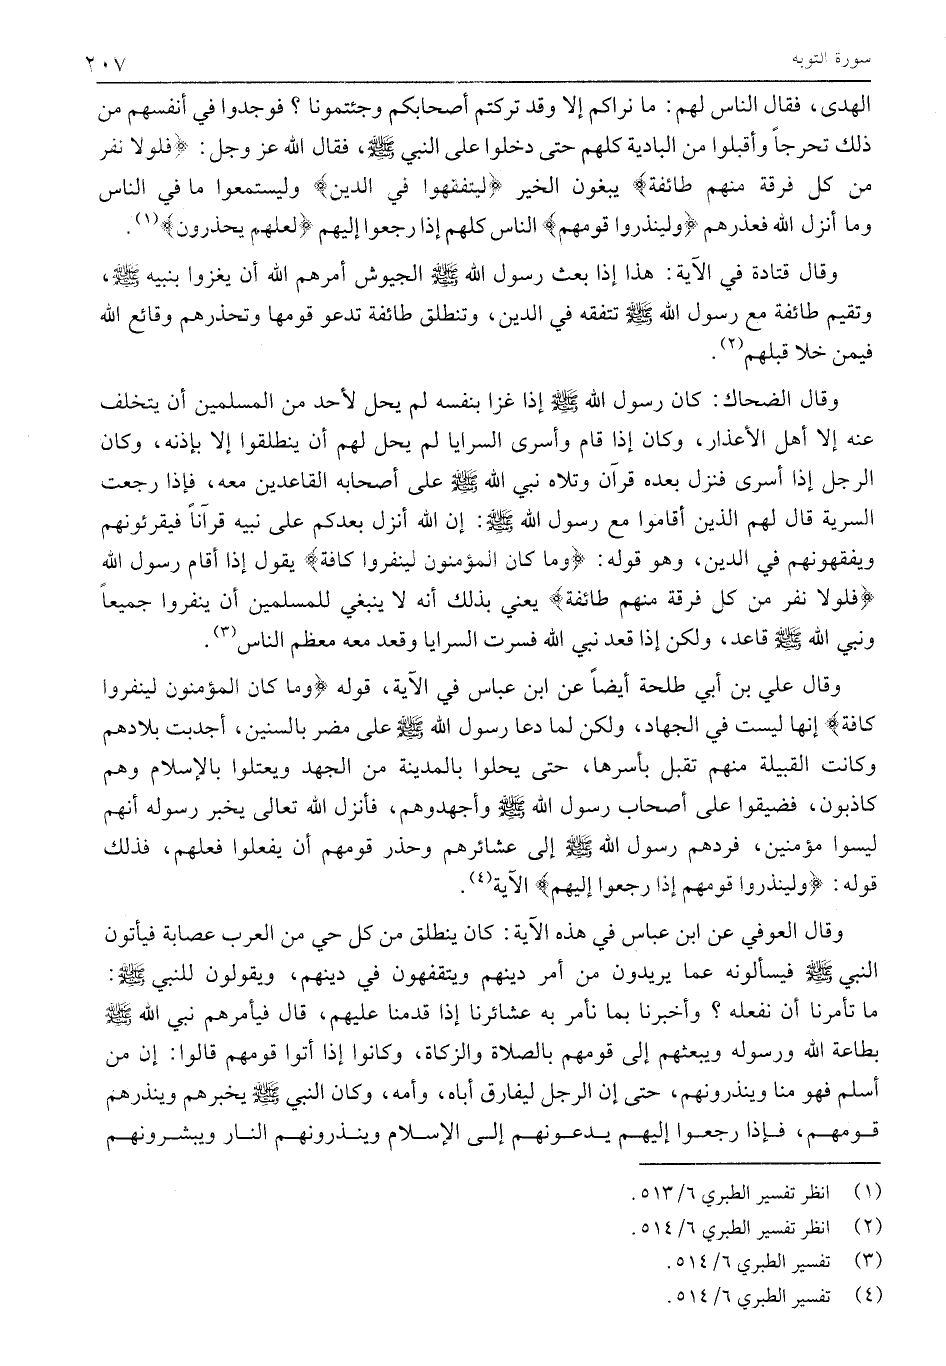 سورة التوبه
٢٠٧
الهدى، فقال الناس لهم: ما نراكم إلا وقد تركتم أصحابكم وجئتمونا ؟ فوجدوا في أنفسهم من
ذلك تحرجاً وأقبلوا من البادية كلهم حتى دخلوا على النبي ﷺ، فقال الله عز وجل: ﴿فلولا نفر
من كل فرقة منهم طائفة﴾ يبغون الخير ﴿ليتفقهوا في الدين﴾ وليستمعوا ما في الناس
وما أنزل الله فعذرهم ﴿ولينذروا قومهم﴾ الناس كلهم إذا رجعوا إليهم ﴿لعلهم يحذرون﴾(١).
وقال قتادة في الآية: هذا إذا بعث رسول الله ﷺ الجيوش أمرهم الله أن يغزوا بنبيه ﷺ،
وتقيم طائفة مع رسول الله ﷺ تتفقه في الدين، وتنطلق طائفة تدعو قومها وتحذرهم وقائع الله
فيمن خلا قبلهم(٢).
وقال الضحاك: كان رسول الله ﷺ إذا غزا بنفسه لم يحل لأحد من المسلمين أن يتخلف
عنه إلا أهل الأعذار، وكان إذا قام وأسرى السرايا لم يحل لهم أن ينطلقوا إلا بإذنه، وكان
الرجل إذا أسرى فنزل بعده قرآن وتلاه نبي الله ﷺ على أصحابه القاعدين معه، فإذا رجعت
السرية قال لهم الذين أقاموا مع رسول الله ﷺ: إن الله أنزل بعدكم على نبيه قرآناً فيقرئونهم
ويفقهونهم في الدين، وهو قوله: ﴿وما كان المؤمنون لينفروا كافة﴾ يقول إذا أقام رسول الله
﴿فلولا نفر من كل فرقة منهم طائفة﴾ يعني بذلك أنه لا ينبغي للمسلمين أن ينفروا جميعاً
ونبي الله ﷺ قاعد، ولكن إذا قعد نبي الله فسرت السرايا وقعد معه معظم الناس(٣).
وقال علي بن أبي طلحة أيضاً عن ابن عباس في الآية، قوله ﴿وما كان المؤمنون لينفروا
كافة﴾ إنها ليست في الجهاد، ولكن لما دعا رسول الله ﷺ على مضر بالسنين، أجدبت بلادهم
وكانت القبيلة منهم تقبل بأسرها، حتى يحلوا بالمدينة من الجهد ويعتلوا بالإسلام وهم
كاذبون، فضيقوا على أصحاب رسول الله ﷺ وأجهدوهم، فأنزل الله تعالى يخبر رسوله أنهم
ليسوا مؤمنين، فردهم رسول الله ﷺ إلى عشائرهم وحذر قومهم أن يفعلوا فعلهم، فذلك
قوله: ﴿ولينذروا قومهم إذا رجعوا إليهم﴾ الآية(٤).
وقال العوفي عن ابن عباس في هذه الآية: كان ينطلق من كل حي من العرب عصابة فيأتون
النبي ﷺ فيسألونه عما يريدون من أمر دينهم ويتقفهون في دينهم، ويقولون للنبي ﷺ:
ما تأمرنا أن نفعله ؟ وأخبرنا بما نأمر به عشائرنا إذا قدمنا عليهم، قال فيأمرهم نبي الله ﷺ
بطاعة الله ورسوله ويبعثهم إلى قومهم بالصلاة والزكاة، وكانوا إذا أتوا قومهم قالوا: إن من
أسلم فهو منا وينذرونهم، حتى إن الرجل ليفارق أباه، وأمه، وكان النبي ﷺ يخبرهم وينذرهم
قومهم، فإذا رجعوا إليهم يدعونهم إلى الإسلام وينذرونهم النار ويبشرونهم
(١) انظر تفسير الطبري ٥١٣/٦.
(٢) انظر تفسير الطبري ٥١٤/٦.
(٣) تفسير الطبري ٥١٤/٦.
(٤) تفسير الطبري ٥١٤/٦.